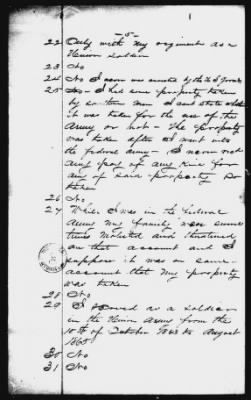 -5-
22 Only with my regiment as a
Union soldier
23 No
24 No I never was arrested by the U.S. Forces
25 I had some property taken
by southern men I cant state whether
it was taken for the use of the
Army or not - The property
was taken after I went into
the federal Army I never had
any pay of any kind for
any of said property so
taken
26 No
27 While I was in the Federal
Army my family were some
times molested and threatened
on that account and I
suppose it was on same
account that my property
was taken
28 No
29 I served as a soldier
in the Union Army from the
10th of October 1863 to August
1865
30 No
31 No